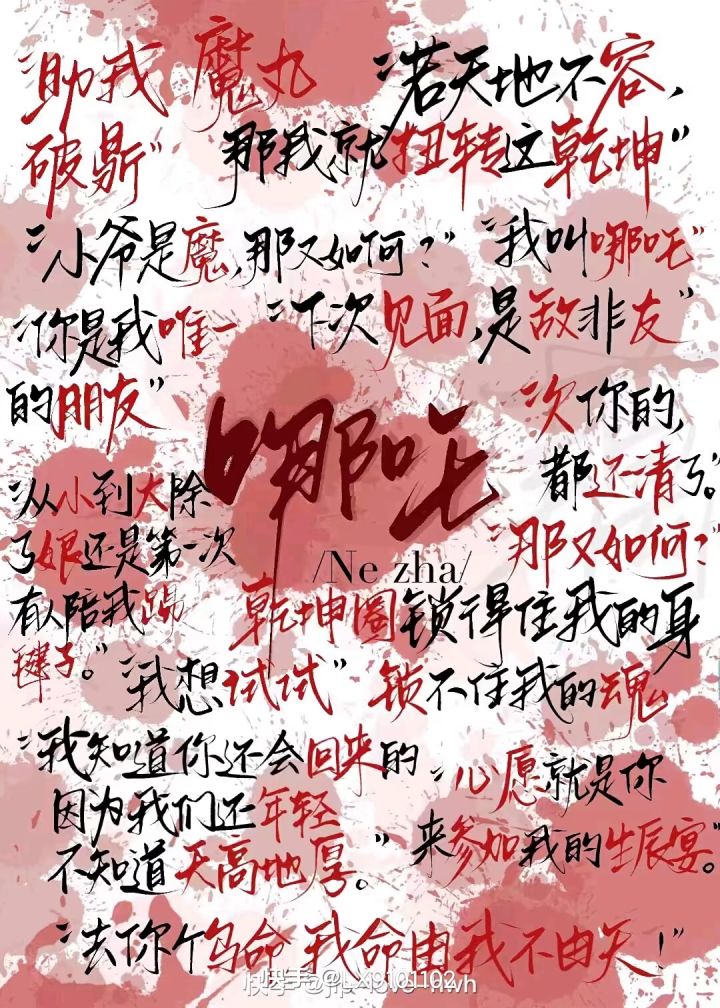 "助我 魔丸
破鼎"
"若天地不容,
那我就扭转这乾坤"
"小爷是魔,那又如何?"
"我叫哪吒"
"你是我唯一
的朋友"
"下次见面,是敌非友"
哪吒
/Ne zha/
次你的,
都还清了。"
"从小到大除
了娘还是第一次
有人陪我踢
毽子。"
"那又如何?"
乾坤圈锁得住我的身
锁不住我的魂
"我想试试"
"我知道你还会回来的
因为我们还年轻
不知道天高地厚。"
"心愿就是你
来参加我的生辰宴。
"去你个鸟命 我命由我不由天!"
快手